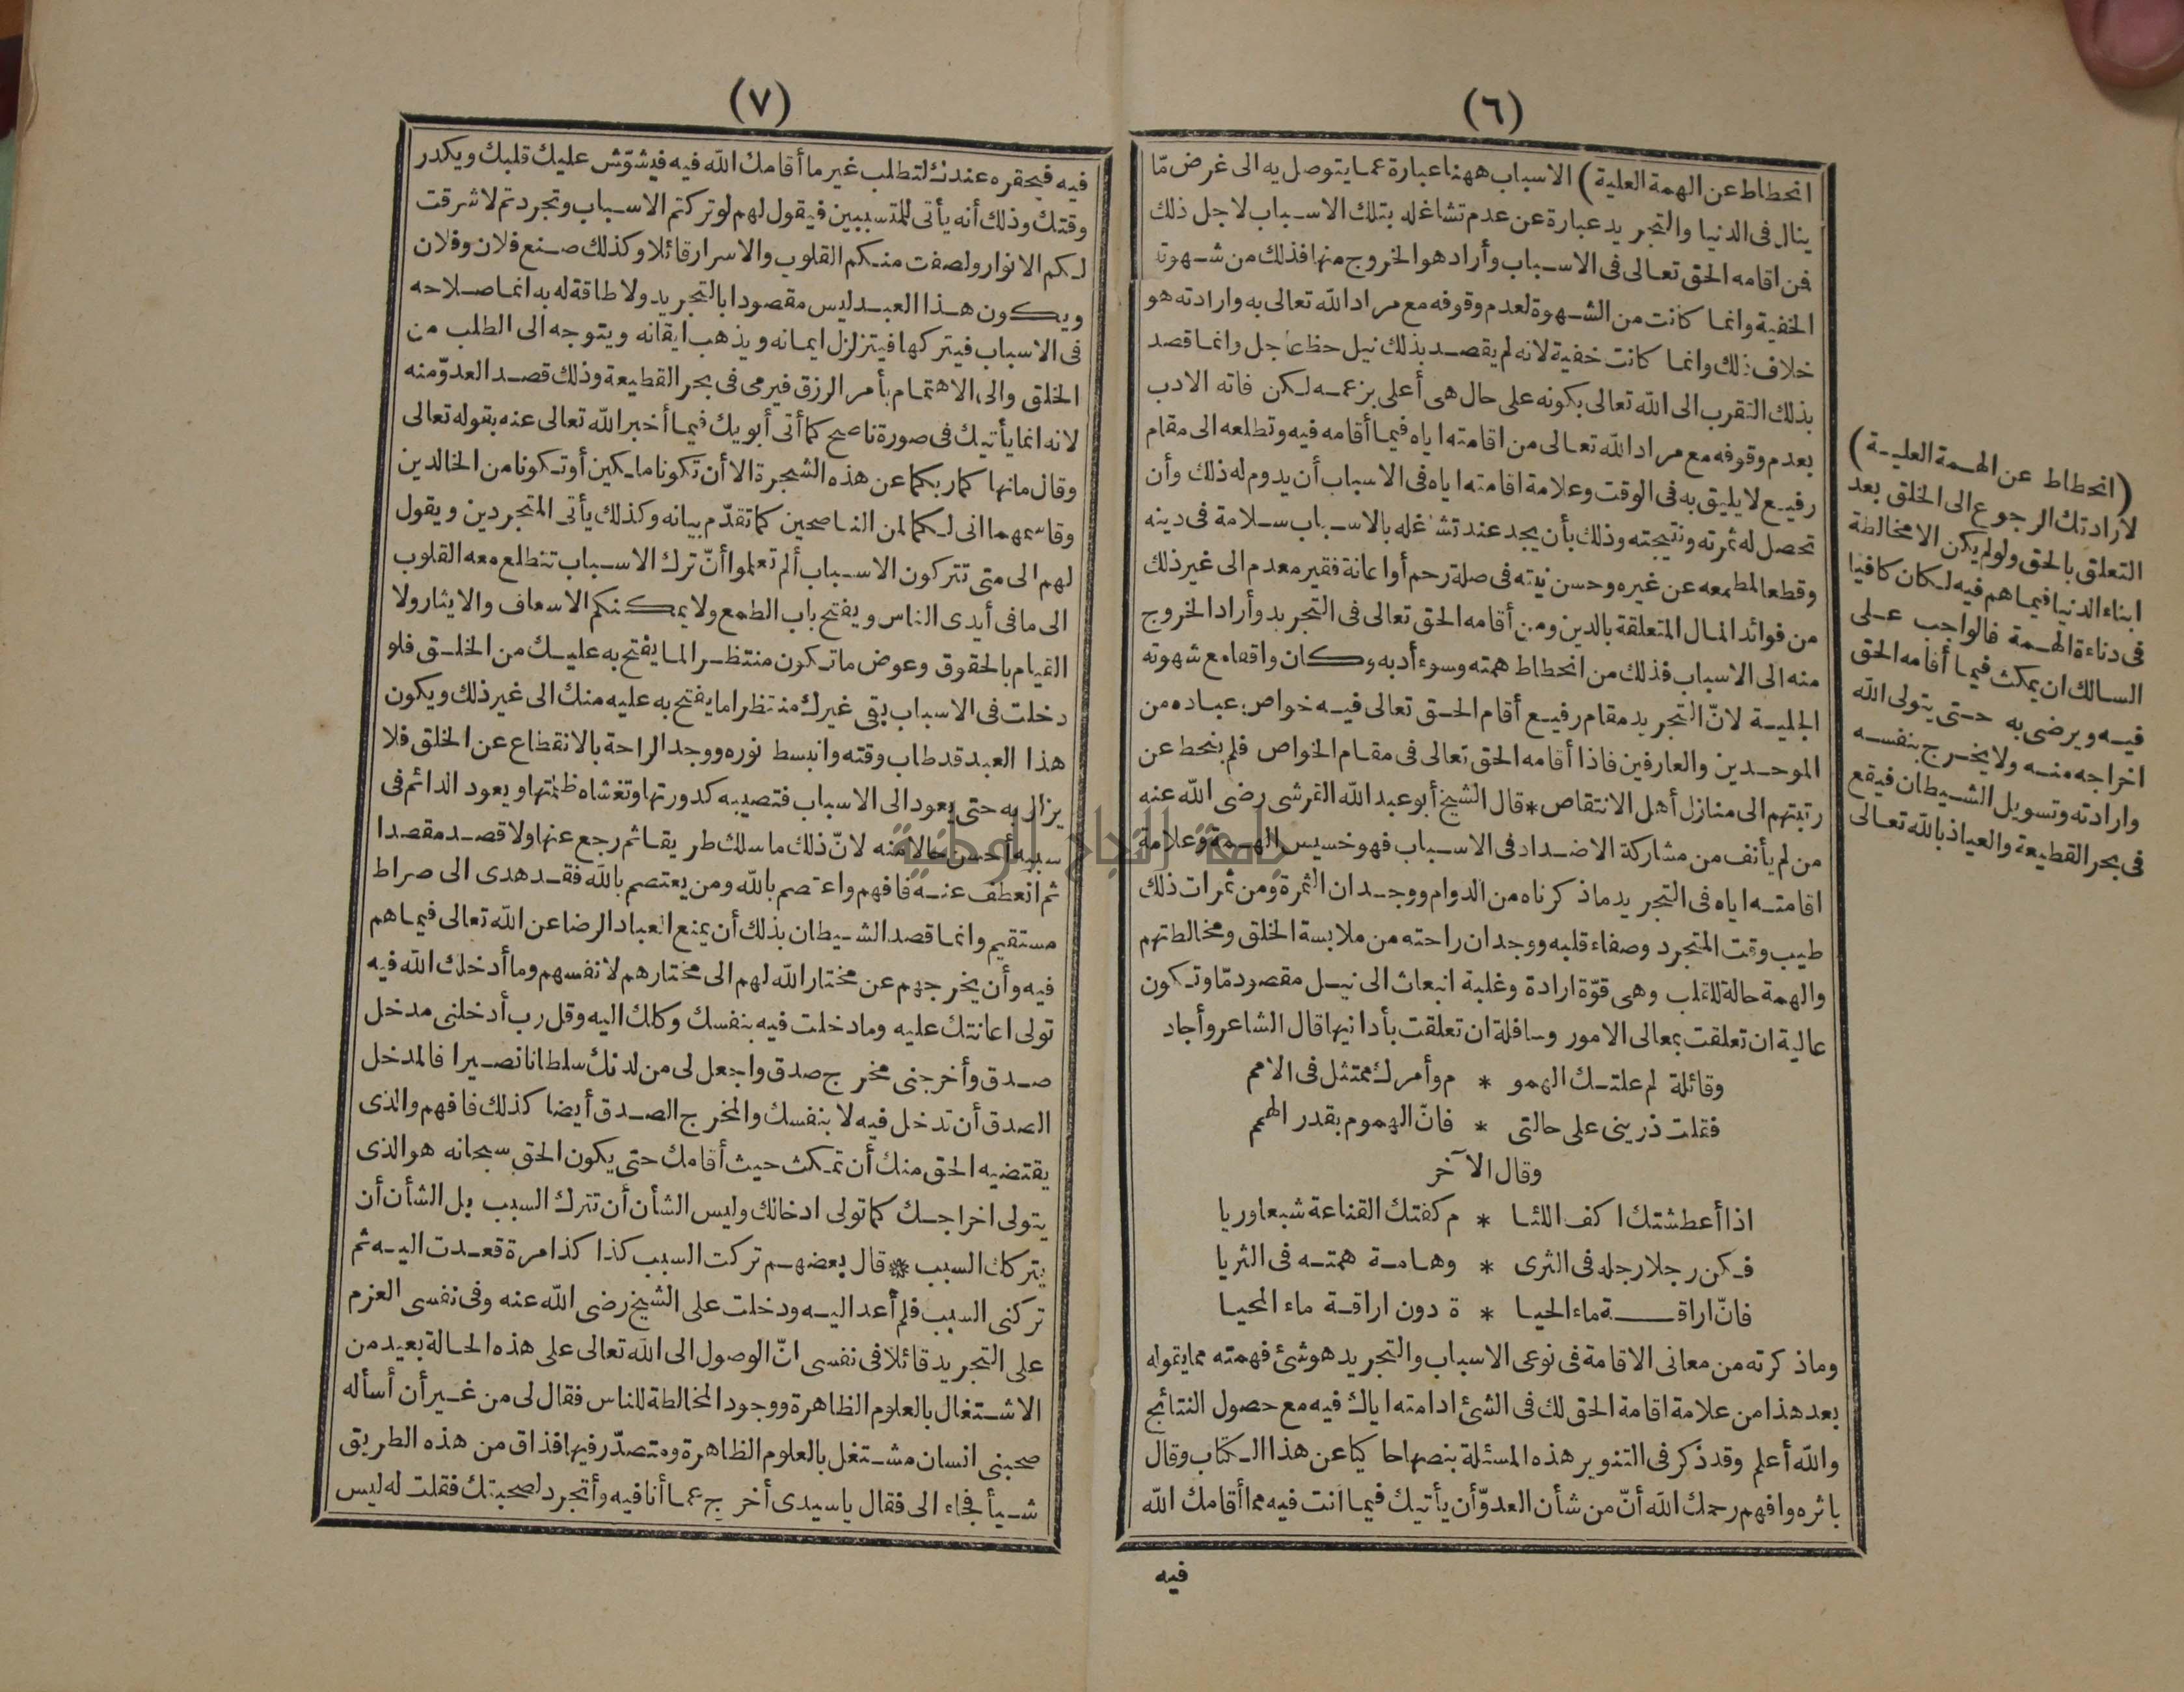 (٦)
انحطاط عن الهمة العلية) الاسباب ههنا عبارة عما يتوصل به الى غرض مّا
ينال فى الدنيا والتجريد عبارة عن عدم تشاغله بتلك الاسباب لاجل ذلك
فن اقامه الحق تعالى فى الاسباب وأراد هو الخروج منها فذلك من شهوته
الخفية وانما كانت من الشهوة لعدم وقوفه مع مراد الله تعالى به وارادته هو
خلاف ذلك وانما كانت خفية لانه لم يقصد بذلك نيل حظ عاجل وانما قصد
بذلك التقرب الى الله تعالى بكونه على حال هى أعلى بزعمه لكن فاته الادب
بعدم وقوفه مع مراد الله تعالى من اقامته اياه فيما أقامه فيه وتطلعه الى مقام
رفيع لا يليق به فى الوقت وعلامة اقامته اياه فى الاسباب أن يدوم له ذلك وأن
تحصل له ثمرته ونتيجته وذلك بأن يجد عند تشاغله بالاسباب سلامة فى دينه
وقطعا لمطمعه عن غيره وحسن نيته فى صلة رحم أو اعانة فقير معدم الى غير ذلك
من فوائد المال المتعلقة بالدين ومن أقامه الحق تعالى فى التجريد وأراد الخروج
منه الى الاسباب فذلك من انحطاط همته وسوء أدبه وكان واقفا مع شهوته
الجلية لانّ التجريد مقام رفيع أقام الحق تعالى فيه خواص عباده من
الموحدين والعارفين فاذا أقامه الحق تعالى فى مقام الخواص فلم ينحط عن
رتبتهم الى منازل أهل الانتقاص * قال الشيخ أبو عبد الله القرشى رضى الله عنه
من لم يأنف من مشاركة الاضداد فى الاسباب فهو خسيس الهمة وعلامة
اقامته اياه فى التجريد ما ذكرناه من الدوام ووجدان الثمرة ومن ثمرات ذلك
طيب وقت المتجرد وصفاء قلبه ووجدان راحته من ملابسة الخلق ومخالطتهم
والهمة حالة للقلب وهى قوّة ارادة وغلبة انبعاث الى نيل مقصود مّا وتكون
عالية ان تعلقت بمعالى الامور وسافلة ان تعلقت بأدانيها قال الشاعر وأجاد
وقائلة لم علتك الهمو * م وأمرك ممتثل فى الامم
فقلت ذرينى على حالتى * فانّ الهموم بقدر الهمم
وقال الآخر
اذا أعطشتك اكف اللئا * م كفتك القناعة شبعا وريا
فكن رجلا رجله فى الثرى * وهامة همته فى الثريا
فانّ اراقة ماء الحيا * ة دون اراقة ماء المحيا
وما ذكرته من معانى الاقامة فى نوعى الاسباب والتجريد هو شئ فهمته مما يقوله
بعد هذا من علامة اقامة الحق لك فى الشئ ادامته اياك فيه مع حصول النتائج
والله أعلم وقد ذكر فى التنوير هذه المسئلة بنصها حاكيا عن هذا الكتاب وقال
باثره وافهم رحمك الله أنّ من شأن العدوّ أن يأتيك فيما انت فيه مما أقامك الله
فيه
(انحطاط عن الهمة العلية)
لارادتك الرجوع الى الخلق بعد
التعلق بالحق ولو لم يكن الا مخالطة
ابناء الدنيا فيما هم فيه لكان كافيا
فى دناءة الهمة فالواجب على
السالك ان يمكث فيما أقامه الحق
فيه ويرضى به حتى يتولى الله
اخراجه منه ولا يخرج بنفسه
وارادته وتسويل الشيطان فيقع
فى بحر القطيعة والعياذ بالله تعالى
(٧)
فيه فيحقره عندك لتطلب غير ما أقامك الله فيه فيشوّش عليك قلبك ويكدر
وقتك وذلك أنه يأتى للمتسببين فيقول لهم لو تركتم الاسباب وتجردتم لاشرقت
لكم الانوار ولصفت منكم القلوب والاسرار قائلا وكذلك صنع فلان وفلان
ويكون هذا العبد ليس مقصودا بالتجريد ولا طاقة له به انما صلاحه
فى الاسباب فيتركها فيتزلزل ايمانه ويذهب ايقانه ويتوجه الى الطلب من
الخلق والى الاهتمام بأمر الرزق فيرمى فى بحر القطيعة وذلك قصد العدوّ منه
لانه انما يأتيك فى صورة ناصح كما أتى أبويك فيما أخبر الله تعالى عنه بقوله تعالى
وقال ما نها كما ربكما عن هذه الشجرة الا أن تكونا ملكين أو تكونا من الخالدين
وقاسمهما انى لكما لمن الناصحين كما تقدّم بيانه وكذلك يأتى المتجردين ويقول
لهم الى متى تتركون الاسباب ألم تعلموا أنّ ترك الاسباب تتطلع معه القلوب
الى ما فى أيدى الناس ويفتح باب الطمع ولا يمكنكم الاسعاف والايثار ولا
القيام بالحقوق وعوض ما تكون منتظرا لما يفتح به عليك من الخلق فلو
دخلت فى الاسباب بقى غيرك منتظرا ما يفتح به عليه منك الى غير ذلك ويكون
هذا العبد قد طاب وقته وانبسط نوره ووجد الراحة بالانقطاع عن الخلق فلا
يزال به حتى يعود الى الاسباب فتصيبه كدورتها وتغشاه ظلمتها ويعود الدائم فى
سببه أحسن حالا منه لانّ ذلك ما سلك طريقا ثم رجع عنها ولا قصد مقصدا
ثم انعطف عنه فافهم واعتصم بالله ومن يعتصم بالله فقد هدى الى صراط
مستقيم وانما قصد الشيطان بذلك أن يمنع العباد الرضا عن الله تعالى فيما هم
فيه وأن يخرجهم عن مختار الله لهم الى مختارهم لانفسهم وما أدخلك الله فيه
تولى اعانتك عليه وما دخلت فيه بنفسك وكلك اليه وقل رب أدخلنى مدخل
صدق وأخرجنى مخرج صدق واجعل لى من لدنك سلطانا نصيرا فالمدخل
الصدق أن تدخل فيه لا بنفسك والمخرج الصدق أيضا كذلك فافهم والذى
يقتضيه الحق منك أن تمكث حيث أقامك حتى يكون الحق سبحانه هو الذى
يتولى اخراجك كما تولى ادخالك وليس الشأن أن تترك السبب بل الشأن أن
يتركك السبب * قال بعضهم تركت السبب كذا كذا مرة فعدت اليه ثم
تركنى السبب فلم أعد اليه ودخلت على الشيخ رضى الله عنه وفى نفسى العزم
على التجريد قائلا فى نفسى انّ الوصول الى الله تعالى على هذه الحالة بعيد من
الاشتغال بالعلوم الظاهرة ووجود المخالطة للناس فقال لى من غير أن أسأله
صحبنى انسان مشتغل بالعلوم الظاهرة ومتصدّر فيها فذاق من هذه الطريق
شيأ فجاء الى فقال يا سيدى أخرج عما أنا فيه وأتجرد لصحبتك فقلت له ليس
جامعة النجاح الوطنية